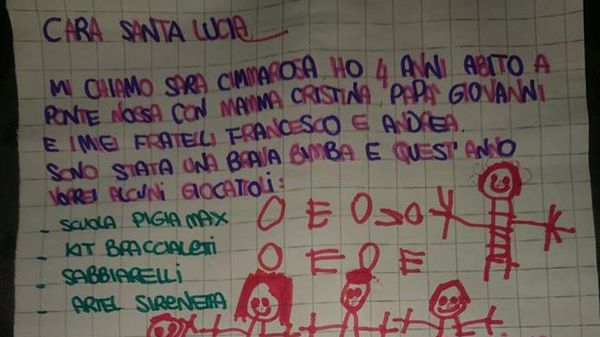 CARA SANTA LUCIA
MI CHIAMO SARA CIMMAROSA HO 4 ANNI ABITO A
PONTE NOSSA CON MAMMA CRISTINA, PAPÀ GIOVANNI
E I MIEI FRATELLI FRANCESCO E ANDREA.
SONO STATA UNA BRAVA BIMBA E QUEST'ANNO
VORREI ALCUNI GIOCATTOLI:
- SCUOLA PIGIAMAX
- KIT BRACCIALETI
- SABBIARELLI
- ARIEL SIRENETTA